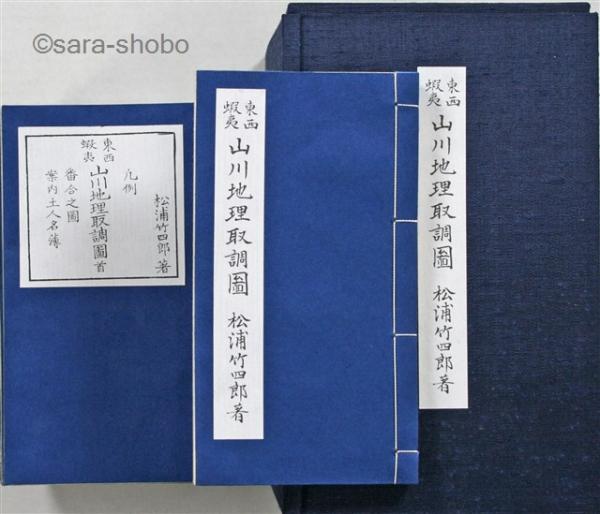 ©sara-shobo
松浦竹四郎著
凡例
東西蝦夷山川地理取調圖首
番合之圖
案内土人名簿
東西蝦夷山川地理取調圖 松浦竹四郎著
東西蝦夷山川地理取調圖 松浦竹四郎著